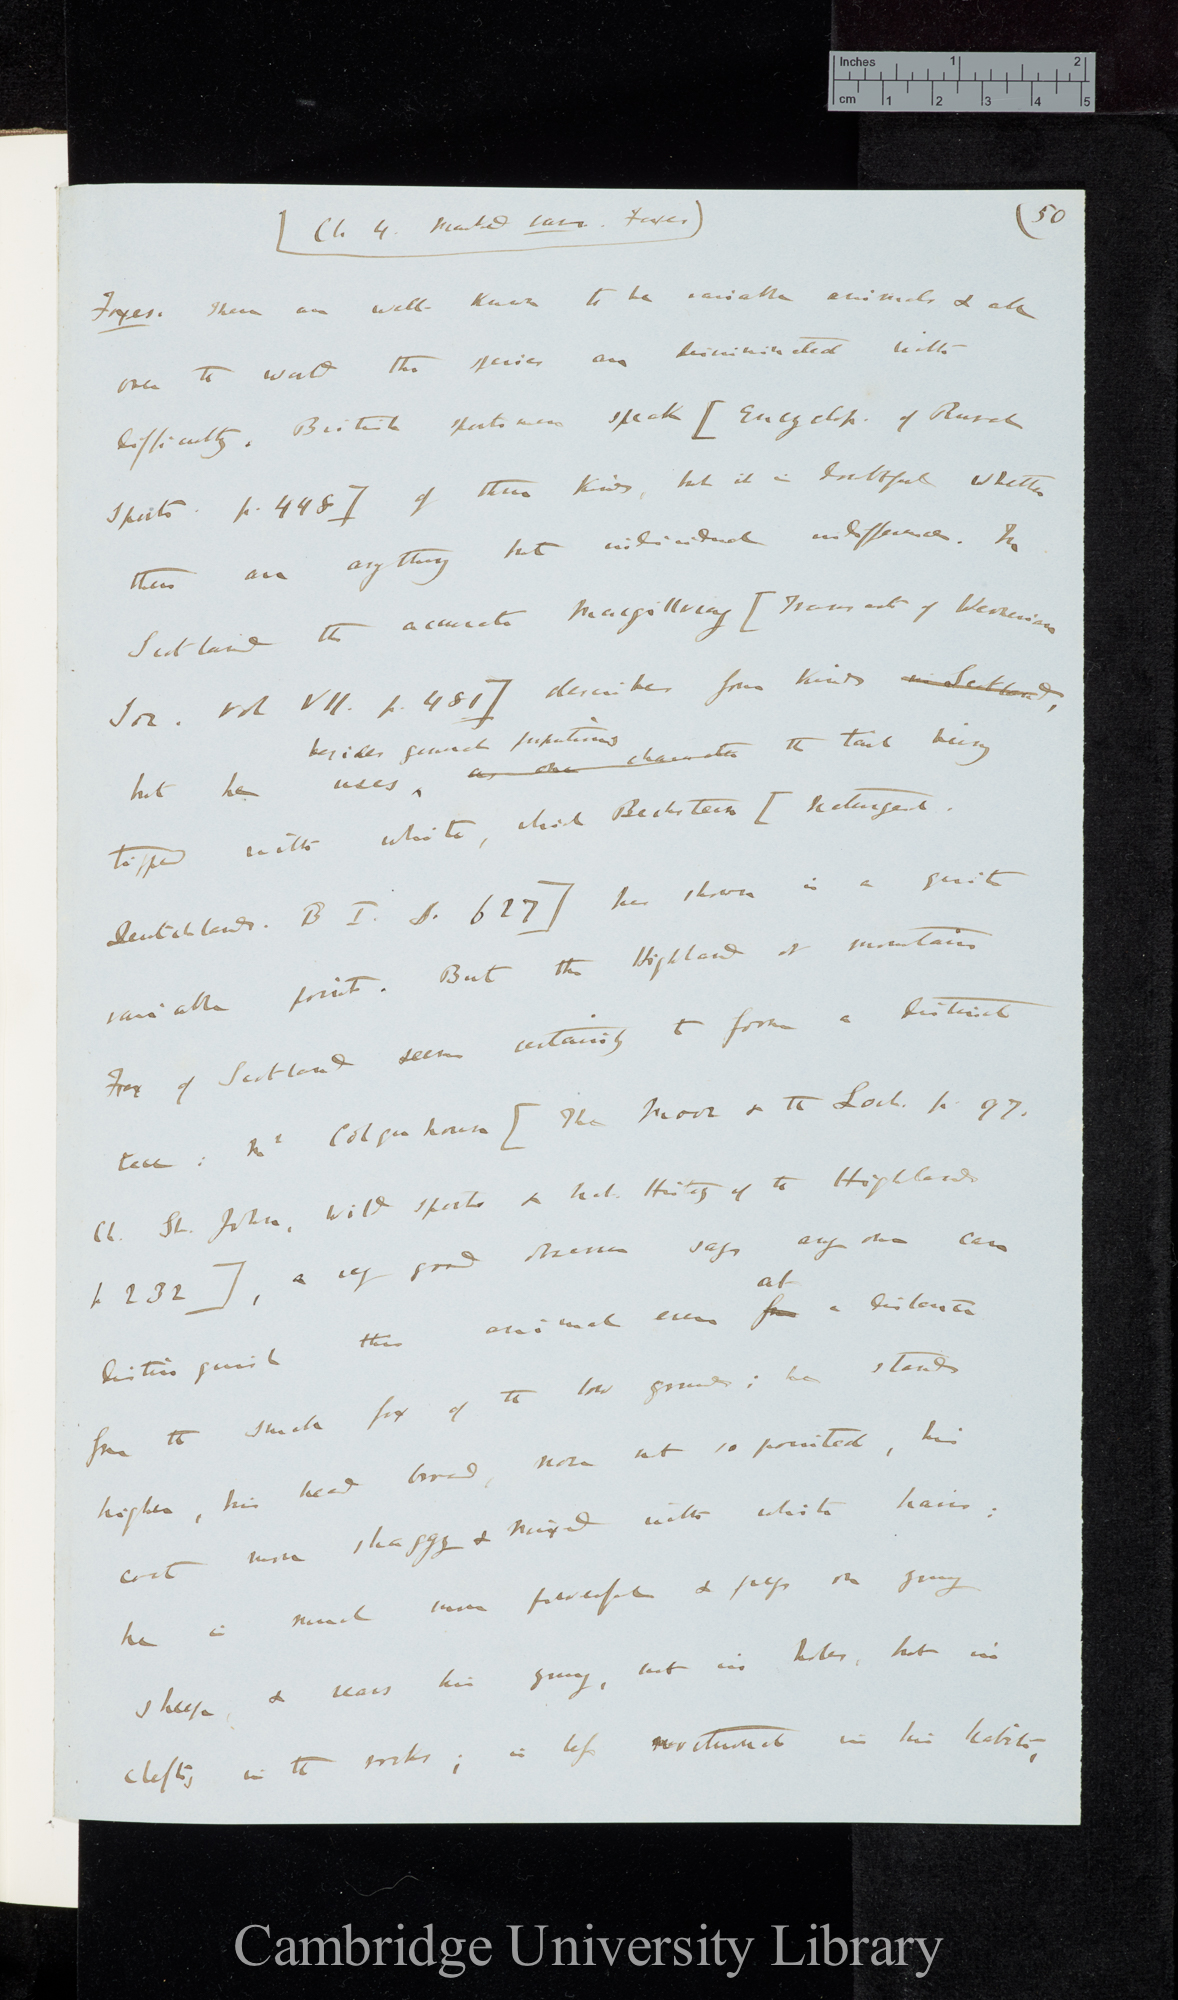 Inches 1 2
cm 1 2 3 4 5
(50
[Ch 4. Marked vars. Foxes)
Foxes. These are well known to be variable animals & all
over the world the species are discriminated with
difficulty. British sportsmen speak [Encyclop. of Rural
Sports. p. 448] of three kinds, but it is doubtful whether
these are anything but individual differences. In
Scotland the accurate Macgillivray [Transact of Wernerian
Soc. vol VII. p. 481] describes four kinds in Scotland,
besides general proportions
but he uses, as one character the tail being
tipped with white, which Bechstein [Naturgesch.
Deutchlands. B I. S. 627] has shown is a quite
variable point. But the Highland or mountain
Fox of Scotland seems certainly to form a distinct
race: Mr Colquhoun [The Moor & the Loch. p. 97.
Ch. St. John, Wild sports & Nat. History of the Highlands
p 232], a very good observer says any one can
at
distinguish this animal even from a distance
from the small fox of the low grounds; he stands
higher, his head broad, nose not so pointed, his
coat more shaggy & mixed with white hairs;
he is much more powerful & preys on young
sheep, & rears his young, not in holes, but in
clefts in the rocks; is less nocturnal in his habits,
Cambridge University Library